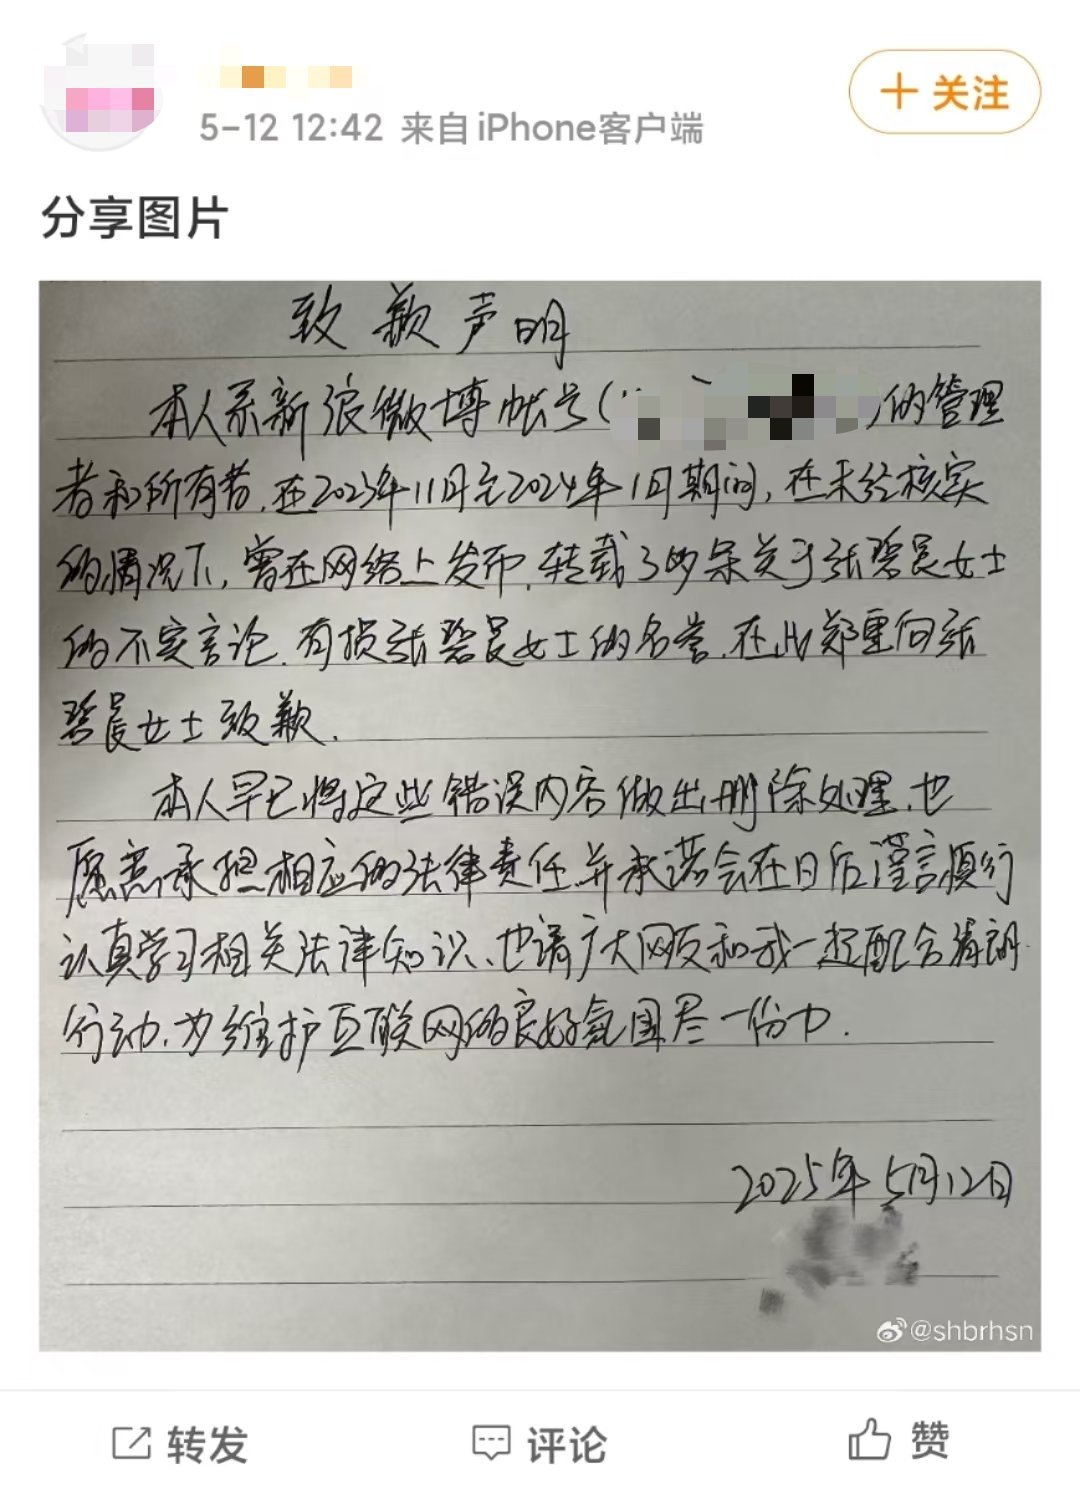 5-12 12:42 来自 iPhone客户端
+ 关注
分享图片
致歉声明
本人系新浪微博帐号(
)的管理
者和所有者,在2023年11月至2024年1月期间,在未经核实
的情况下,曾在网络上发布,转载了多条关于张碧晨女士
的不实言论,有损张碧晨女士的名誉,在此郑重向张
碧晨女士致歉.
本人早已将这些错误内容做出删除处理,也
愿意承担相应的法律责任,并承诺会在日后谨言慎行
认真学习相关法律知识、也请广大网友和我一起配合清朗
行动,为维护互联网的良好氛围尽一份力.
2025年5月12日
@shbrhsn
转发
评论
赞